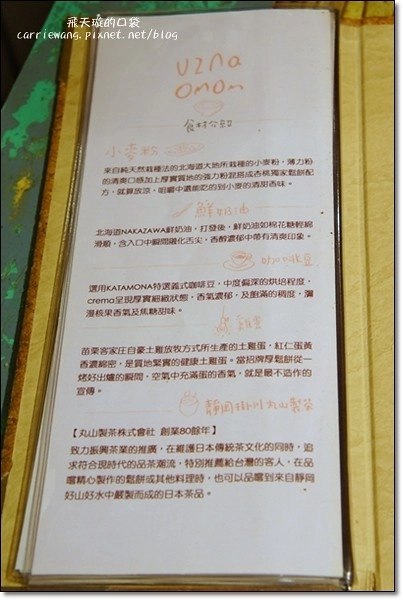 飛天璇的口袋
carriewang.pixnet.net/blog
uzna
omom
食材介紹
小麥粉
來自純天然栽種法的北海道大地所栽種的小麥粉，薄力粉
的清爽口感加上厚實質地的強力粉混搭成杏桃獨家鬆餅配
方，就算放涼，咀嚼中還能吃的到小麥的清甜香味。
鮮奶油
北海道NAKAZAWA鮮奶油，打發後，鮮奶油如棉花糖輕綿
滑順，含入口中瞬間融化舌尖，香醇濃郁中帶有清爽印象。
選用KATAMONA特選義式咖啡豆，中度偏深的烘培程度，
crema呈現厚實細緻狀態，香氣濃郁，及飽滿的稠度，瀰
漫核果香氣及焦糖甜味。
雞蛋
苗栗客家庄自豪土雞放牧方式所生產的土雞蛋，紅仁蛋黃
香濃綿密，是質地緊實的健康土雞蛋。當招牌厚鬆餅從一
烤好出爐的瞬間，空氣中充滿蛋的香氣，就是最不造作的
宣傳。
靜岡掛川丸山製茶
【丸山製茶株式會社 創業80餘年】
致力振興茶業的推廣，在維護日本傳統茶文化的同時，追
求符合現時代的品茶潮流，特別推薦給台灣的客人，在品
嚐精心製作的鬆餅或其他料理時，也可以品嚐到來自靜岡
好山好水中嚴製而成的日本茶品。